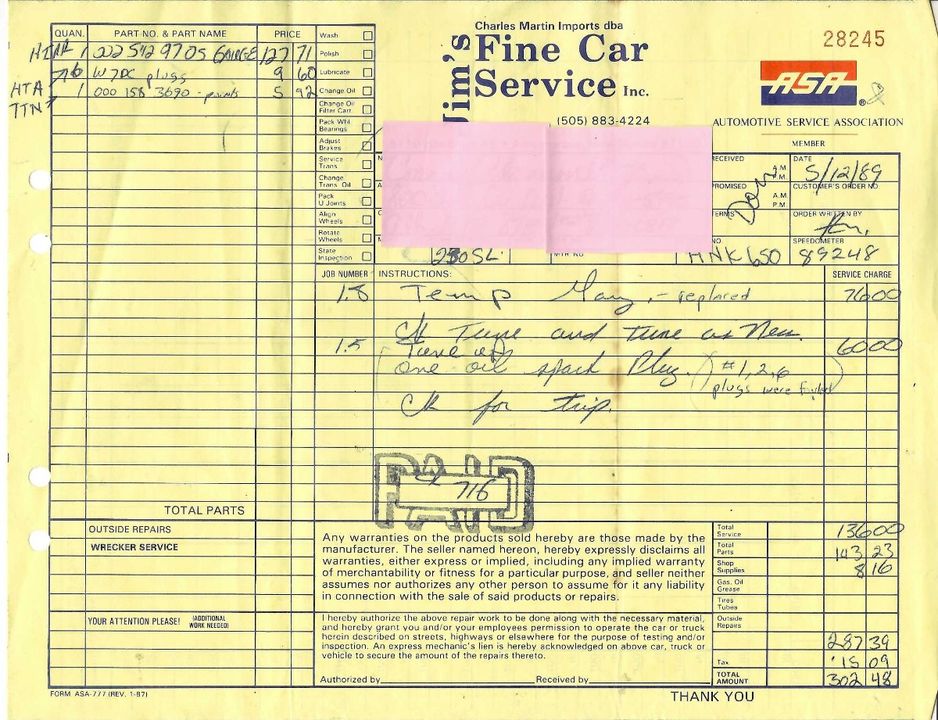 Charles Martin Imports dba
Jim's Fine Car Service Inc.
(505) 883-4224
28245
ASA ®
AUTOMOTIVE SERVICE ASSOCIATION
MEMBER
QUAN. PART NO. & PART NAME PRICE
1 002 542 9705 GAUGE 127 71
6 W7DC plugs 9 60
HTA 1 000 158 3690 - points 5 92
TTN
Wash
Polish
Lubricate
Change Oil
Change Oil Filter Cart.
Pack Whl Bearings
Adjust Brakes
Service Trans
Change Trans. Oil
Pack U Joints
Align Wheels
Rotate Wheels
State Inspection
RECEIVED A.M. P.M.
DATE 5/12/89
PROMISED A.M. P.M.
CUSTOMER'S ORDER NO.
TERMS
ORDER WRITTEN BY
250 SL
MTR. NO.
NO HNK 650
SPEEDOMETER 89248
JOB NUMBER INSTRUCTIONS: SERVICE CHARGE
1.8 Temp Gaug - replaced 7600
Ck Tune and tune as Nes.
1.5 Tune up 6000
one oil spark Plug. (#1,2,6
plugs were fouled)
Ck for trip.
PAID
ck 716
TOTAL PARTS
OUTSIDE REPAIRS
WRECKER SERVICE
YOUR ATTENTION PLEASE! (ADDITIONAL WORK NEEDED)
Any warranties on the products sold hereby are those made by the
manufacturer. The seller named hereon, hereby expressly disclaims all
warranties, either express or implied, including any implied warranty
of merchantability or fitness for a particular purpose, and seller neither
assumes nor authorizes any other person to assume for it any liability
in connection with the sale of said products or repairs.
I hereby authorize the above repair work to be done along with the necessary material,
and hereby grant you and/or your employees permission to operate the car or truck
herein described on streets, highways or elsewhere for the purpose of testing and/or
inspection. An express mechanic's lien is hereby acknowledged on above car, truck or
vehicle to secure the amount of the repairs thereto.
Authorized by Received by
Total Service 13600
Total Parts 143 23
Shop Supplies 8 16
Gas. Oil Grease
Tires Tubes
Outside Repairs
287 39
Tax 15 09
TOTAL AMOUNT 302 48
FORM ASA-777 (REV. 1-87)
THANK YOU